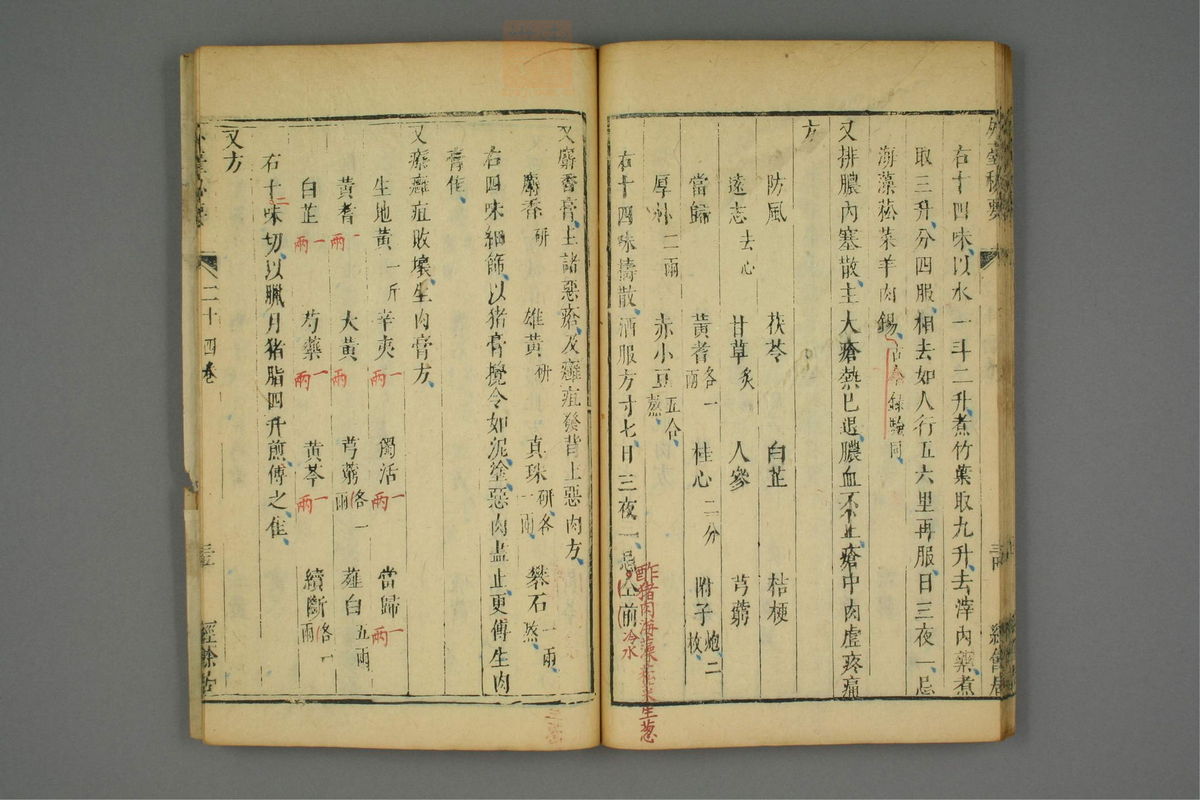 右十四味以水一斗二升煮竹葉取九升去滓內藥煮
取三升分四服相去如人行五六里再服日三夜一忌
海藻菘菜羊肉餳古今錄驗同
又排膿內塞散主大瘡熱已退膿血不止瘡中肉虛疼痛
方
防風 茯苓 白芷 桔梗
遠志去心 甘草炙 人參 芎藭
當歸 黃耆各一兩 桂心二分 附子炮二枚
厚朴二兩 赤小豆五合蒸
右十四味擣散酒服方寸七日三夜一忌仝前
酢猪肉海藻菘
生葱
冷水
又麝香膏主諸惡瘡及癰疽發背上惡肉方
麝香研 雄黃研 真珠研各一兩 礬石一兩熬
右四味細篩以猪膏攪令如泥塗惡肉盡止更傅生肉
膏佳
又療癰疽敗壞生肉膏方
生地黃一斤 辛夷一兩 獨活一兩 當歸一兩
黃耆一兩 大黃兩 芎藭各一兩 薤白五兩
白芷一兩 芍藥一兩 黃芩一兩 續斷各一兩
右十二味切以臘月猪脂四升煎傅之佳
又方
二十四卷
經餘居